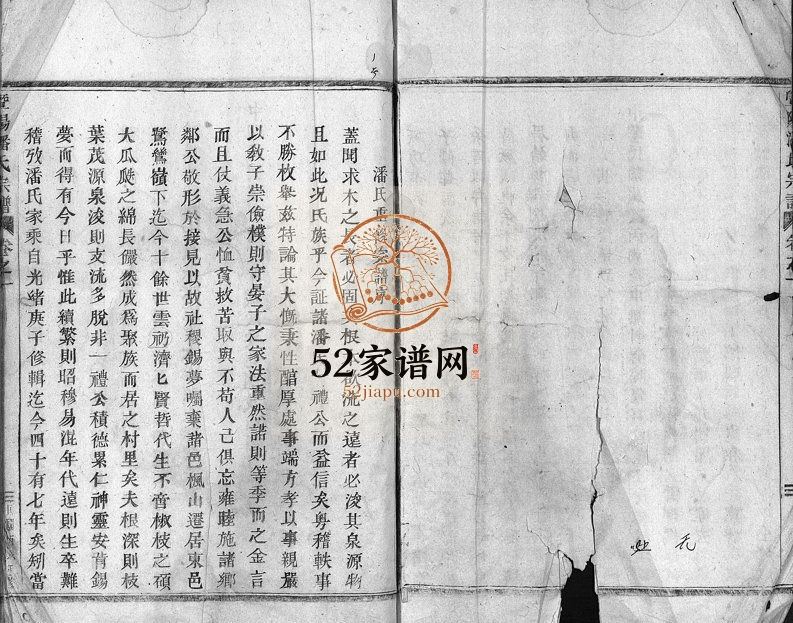 潘氏重修宗譜序
蓋聞求木之長者必固其根本欲流之遠者必浚其泉源物
且如此況氏族乎今証諸潘 禮公而益信矣粤稽軼事
不勝枚舉兹特論其大慨秉性醇厚處事端方孝以事親嚴
以教子崇儉樸則守晏子之家法重然諾則等季而之金言
而且仗義急公恤貧救苦取與不苟人己俱忘雍睦施諸鄉
鄰公敬形於接見以故社稷錫夢囑棄諸邑楓山遷居東邑
鷲鷺嶺下迄今十餘世雲礽濟匕賢哲代生不啻椒枝之碩
大瓜瓞之綿長儼然成爲聚族而居之村里矣夫根深則枝
葉茂源泉浚則支流多脫非一禮公積德累仁神靈安肯錫
夢而得有今日乎惟此續繁則昭穆易混年代遠則生卒難
稽攷潘氏家乘自光緒庚子修輯迄今四十有七年矣矧當
暨陽潘氏宗譜
卷之一
52家谱网
52jiapu.com